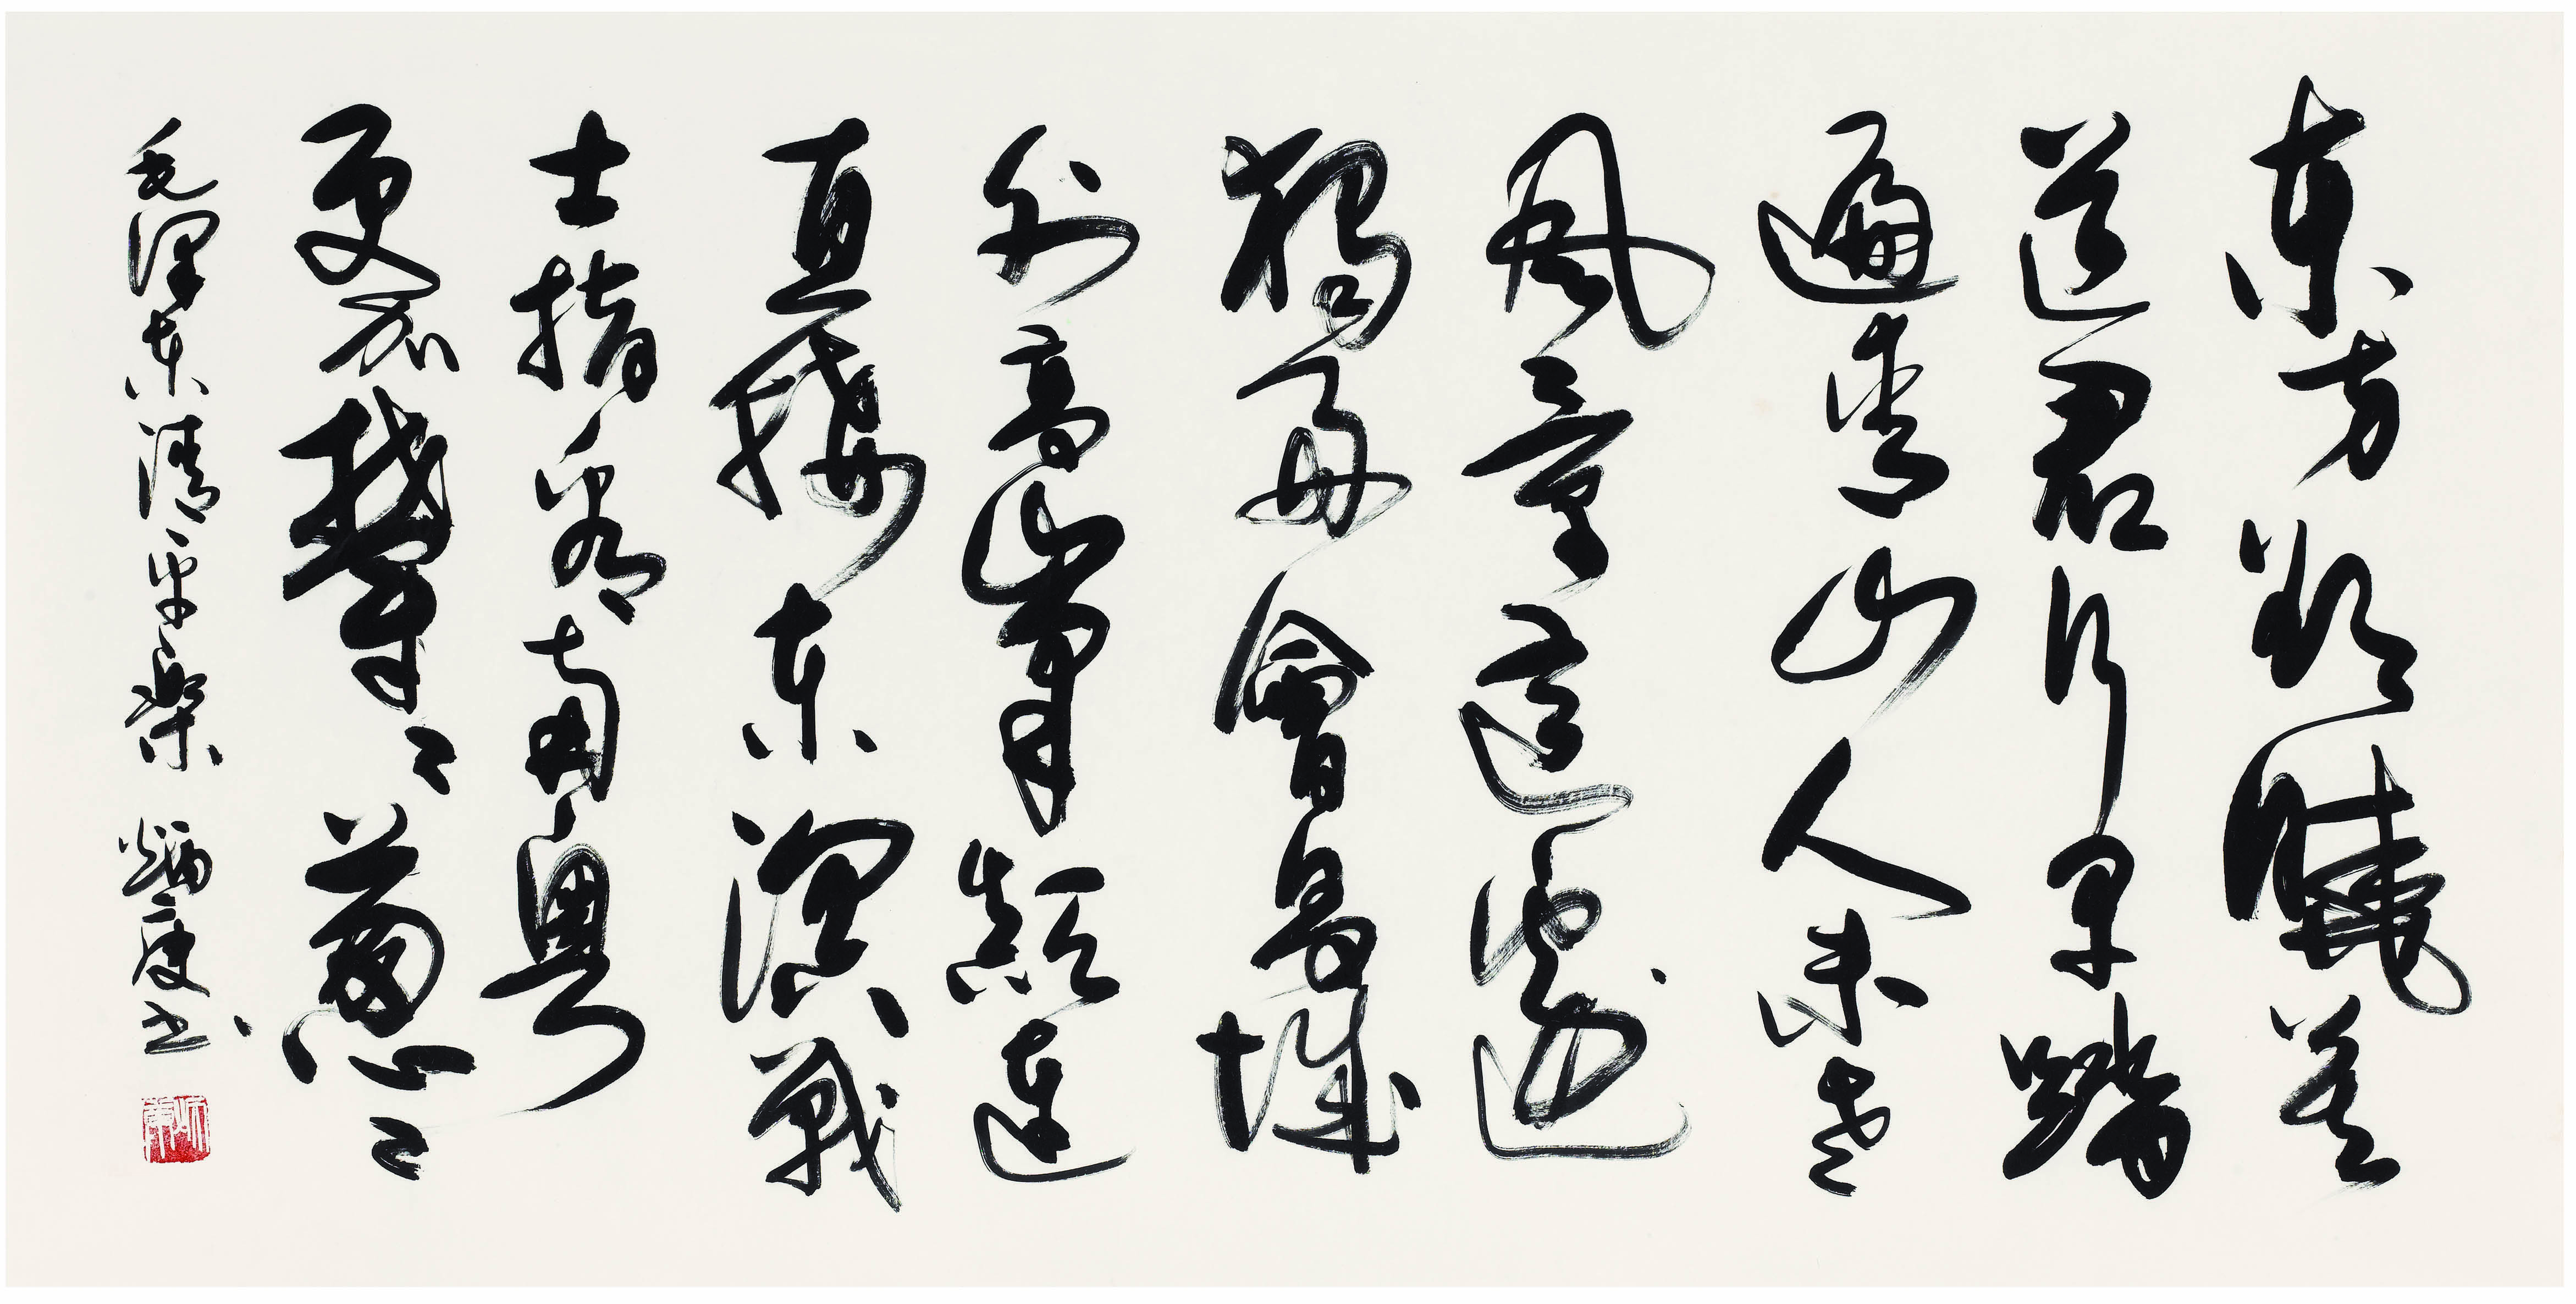 東方欲曉莫
道君行早踏
遍青山人未老
風景這邊
獨好會昌城
外高峯顛連
直接東溟戰
士指看南粵
更加鬱々葱々
毛澤東清平樂 炳度书